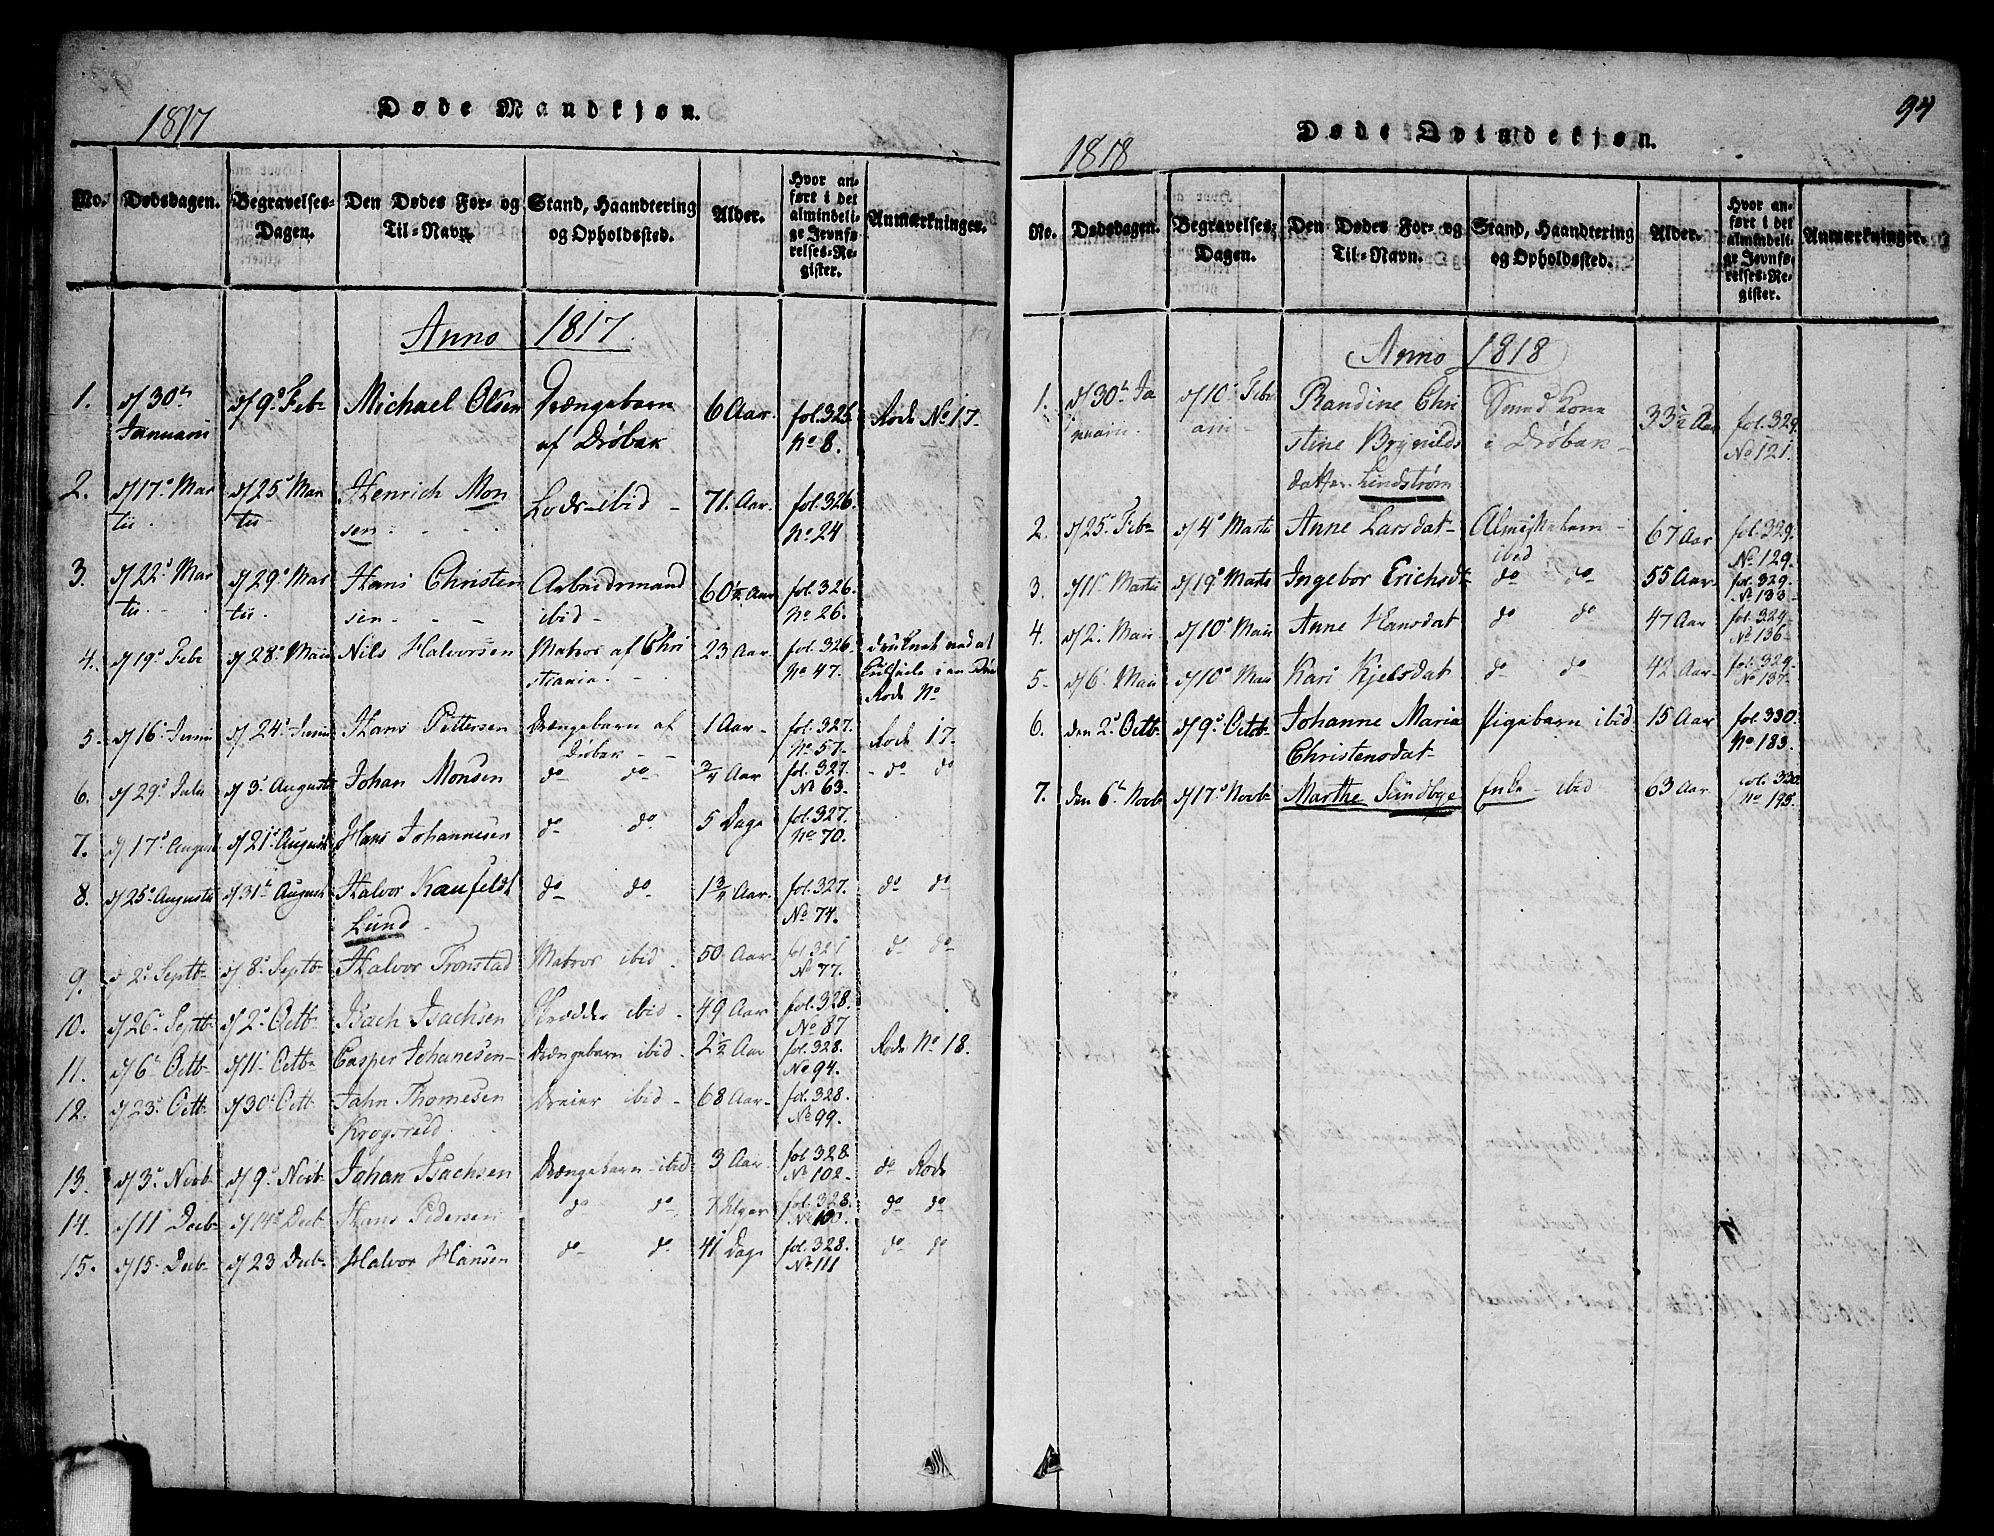 1817
Døde Mandkjøn.
No.
Dødsdagen.
Begravelses-
Dagen.
Den Dødes For- og
Til-Navn.
Stand, Haandtering
og Opholdssted.
Alder.
Hvor an-
ført i det
almindeli-
ge Jevnfø-
relses-Re-
gister.
Anmærkninger.
Anno 1817.
1. d/30te Januarii d/9de Feb Michael Olsen Drængebarn af Drøbak 6 Aar. fol. 326. No 8. Rode No 17.
2. d/17de Martii d/25de Martii Henrich Monsen Lods ibid 71. Aar. fol. 326. No 24
3. d/22de Martii d/29de Martii Hans Christensen Arbeidsmand ibid 60½ Aar fol. 326. No 26.
4. d/19de Febr d/28de Maii Nils Halvorsen Matros af Christiania. 23 Aar. fol. 326. No 47. Rode No
5. d/16 Junii d/24de Junii Hans Pettersen Drængebarn af Drøbak 1 Aar fol. 327. No 57. Rode 17.
6. d/29de Julii d/3de Augusti Johan Monsen do do ¾ Aar fol. 327. No 63. do do
7. d/17de August d/21de Augusti Hans Johannesen do do 5 Dage fol. 327. No 70.
8. d/25de Augusti d/31te August Halvor Kaufeldt Lund do do 1¾ Aar. fol. 327. No 74. do do
9. d/2de Septb d/8de Septb Halvor Tronstad Matros ibid 50 Aar fol. 327 No 77. do do
10. d/26de Septb d/2de Octb Isach Isachsen Skrædder ibid 49 Aar fol. 328. No 87
11. d/6te Octb d/11te Octb Casper Johanesen Drængebarn ibid 2½ Aar fol. 328. No 94. Rode No 18.
12. d/23de Octb d/30te Octb Jahn Thomesen Krogsrud Dreier ibid 68 Aar fol. 328. No 99.
13. d/3de Novb d/9de Novb Johan Isachsen Drængebarn ibid 3 Aar fol. 328. No 102. do Rode
14. d/11 Decb d/14de Decb Hans Pedersen do do 7 Uger fol. 328. do do
15. d/15 Decb d/23 Decb Halvor Hansen do do 41 Dage fol. 328. No 111 do do
94
1818
Døde Qvindekjøn.
No.
Dødsdagen.
Begravelses-
Dagen.
Den Dødes For- og
Til-Navn.
Stand, Haandtering
og Opholdssted.
Alder.
Hvor an-
ført i det
almindeli-
ge Jevnfø-
relses-Re-
gister.
Anmærkninger.
Anno 1818
1. d/30te Januarii d/10de Februarii Randine Christine Brynildsdatter Lindstrøm Smed Kone i Drøbak 33½ Aar fol. 329. No 121.
2. d/25 Feb d/4de Martii Anne Larsdat Almisselem ibid 67 Aar fol. 329. No 129.
3. d/11 Martii d/19de Martii Ingebor Erichsdt do do 55 Aar fol. 329. No 133
4. d/2 Maii d/10de Maii Anne Hansdat do do 47 Aar fol. 329. No 136
5. d/6 Maii d/10de Maii Kari Kjelsdat do do 42 Aar fol. 329. No 137
6. den 2de Octb d/9de Octob Johanne Maria Christensdat Pigebarn ibid 15 Aar fol. 330. No 183.
7. den 6te Novb d/17de Novb Marthe Sundbye Enke ibid 63 Aar fol. 330. No 195.